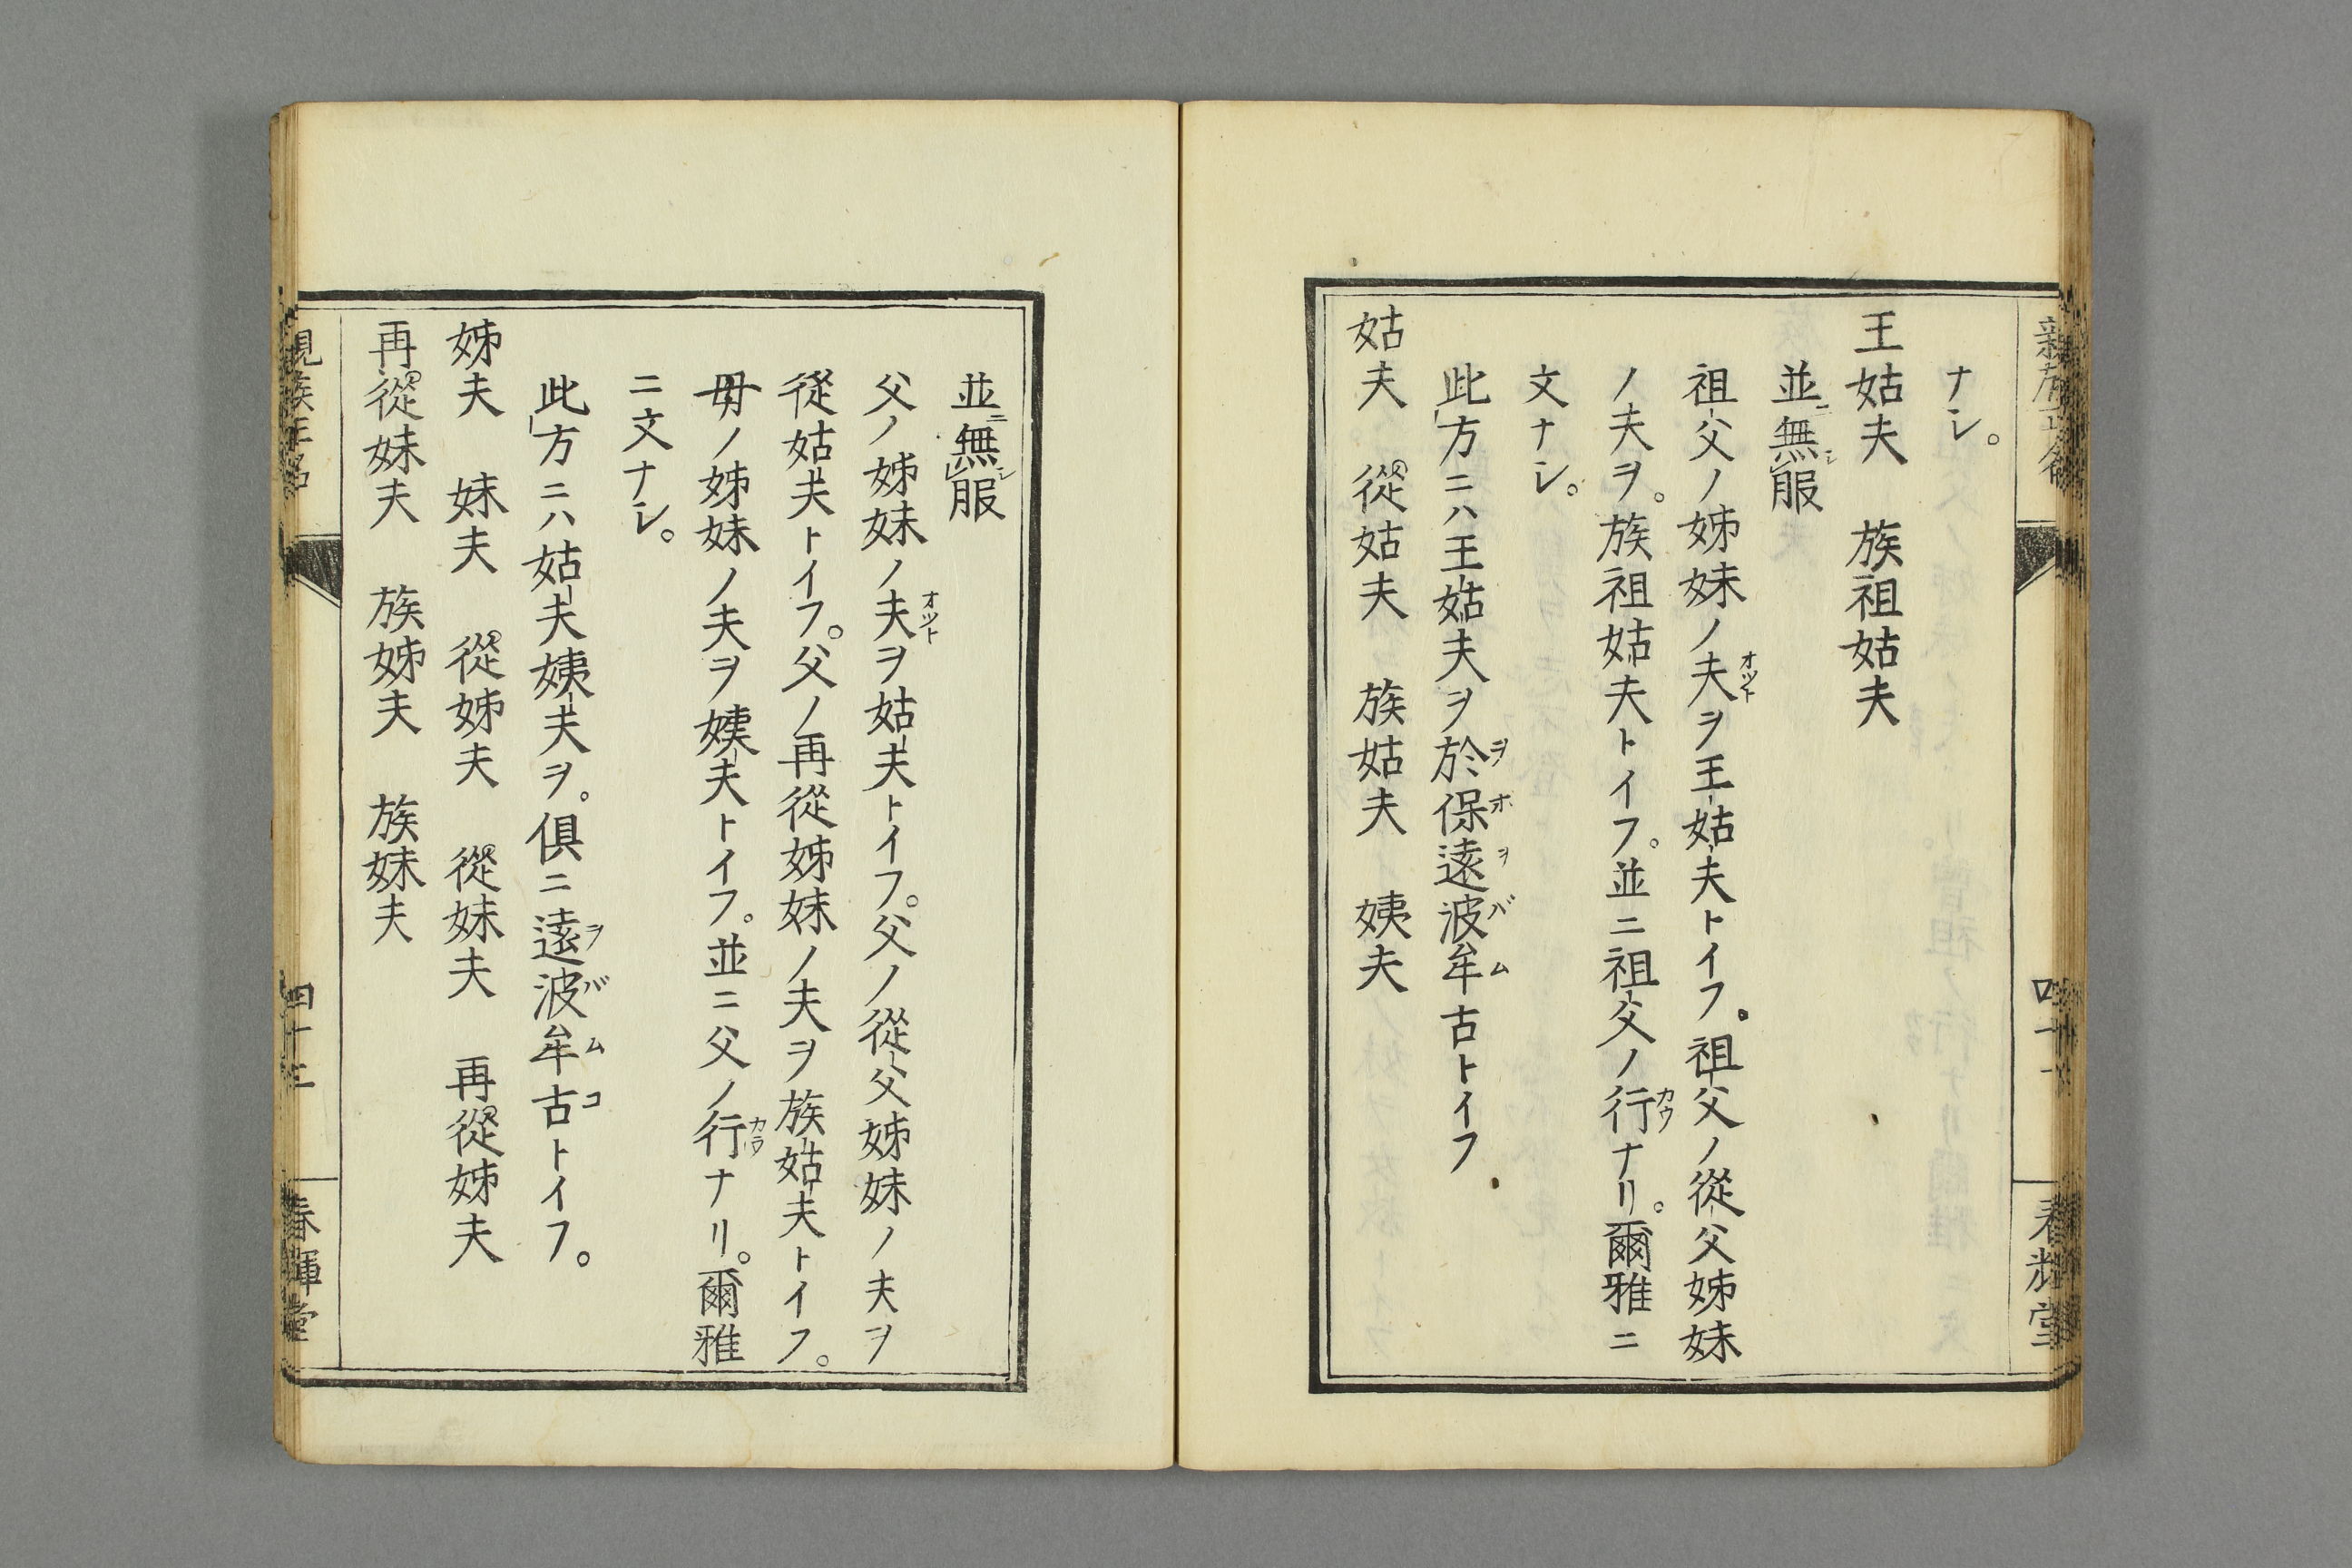 ナシ。
王姑夫　族祖姑夫
並ニ無シ服
祖父ノ姊妹ノ夫オツトヲ王姑夫トイフ。祖父ノ從父姊妹
ノ夫ヲ。族祖姑夫トイフ。並ニ祖父ノ行カウナリ。爾雅ニ
文ナシ。
此方ニハ王姑夫ヲ於ヲ保ホ遠ヲ波バ牟ム古トイフ
姑夫　從姑夫　族姑夫　姨夫
春輝堂
並ニ無シ服
父ノ姊妹ノ夫オツトヲ姑夫トイフ。父ノ從父姊妹ノ夫ヲ
從姑夫トイフ。父ノ再從姊妹ノ夫ヲ族姑夫トイフ。
母ノ姊妹ノ夫ヲ姨夫トイフ。並ニ父ノ行カウナリ。爾雅
ニ文ナシ。
此方ニハ姑夫姨夫ヲ。俱ニ遠ヲ波バ牟ム古コトイフ。
姊夫　妹夫　從姊夫　從妹夫　再從姊夫
再從妹夫　族姊夫　族妹夫
親族正名
春輝堂